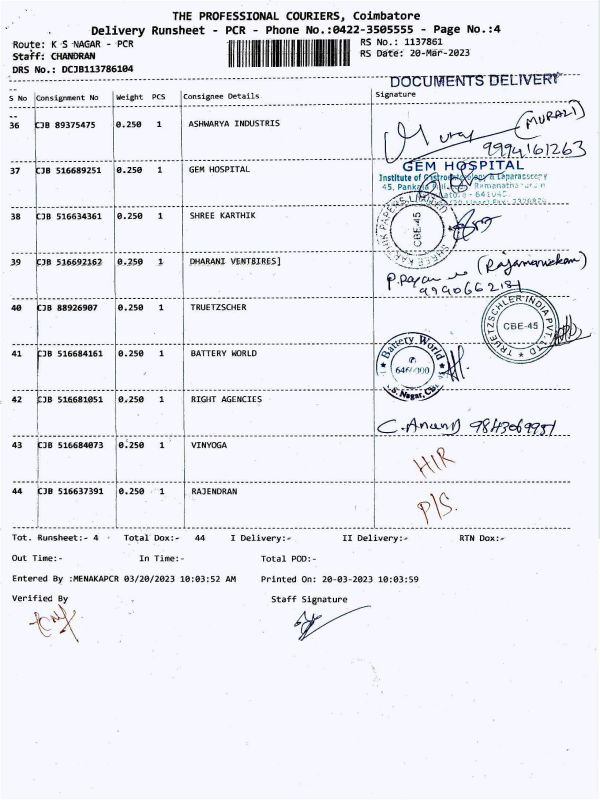 THE PROFESSIONAL COURIERS, Coimbatore
Delivery Runsheet - PCR - Phone No.:0422-3505555 - Page No.:4
Route: K S NAGAR - PCR
RS No.: 1137861
Staff: CHANDRAN
RS Date: 20-Mar-2023
DRS No.: DCJB113786104
DOCUMENTS DELIVERY
S No Consignment No Weight PCS Consignee Details Signature
36 CJB 89375475 0.250 1 ASHWARYA INDUSTRIS
(MURALI)
9994161263
37 CJB 516689251 0.250 1 GEM HOSPITAL
GEM HOSPITAL
Institute of Gastroenterology & Laparoscopy
45, Pankaja Ramanathapuram
38 CJB 516634361 0.250 1 SHREE KARTHIK
SHREE KARTHIK PAPERS LIMITED
CBE-45
39 CJB 516692162 0.250 1 DHARANI VENTBIRES]
40 CJB 88926907 0.250 1 TRUETZSCHER
TRUETZSCHLER INDIA PVT. LTD
CBE-45
41 CJB 516684161 0.250 1 BATTERY WORLD
Battery World
42 CJB 516681051 0.250 1 RIGHT AGENCIES
C. Anand 9843069951
43 CJB 516684073 0.250 1 VINYOGA
HIR
44 CJB 516637391 0.250 1 RAJENDRAN
P/S.
Tot. Runsheet:- 4 Total Dox:- 44 I Delivery:- II Delivery:- RTN Dox:-
Out Time:- In Time:- Total POD:-
Entered By :MENAKAPCR 03/20/2023 10:03:52 AM Printed On: 20-03-2023 10:03:59
Verified By Staff Signature